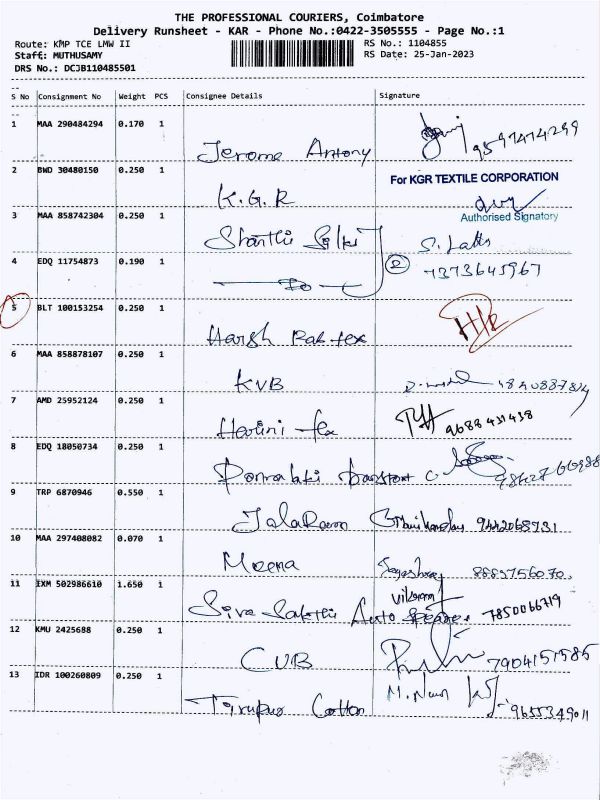 THE PROFESSIONAL COURIERS, Coimbatore
Delivery Runsheet - KAR - Phone No.:0422-3505555 - Page No.:1
Route: KMP TCE LMW II
RS No.: 1104855
Staff: MUTHUSAMY
RS Date: 25-Jan-2023
DRS No.: DCJB110485501
S No Consignment No Weight PCS Consignee Details Signature
1 MAA 290484294 0.170 1
Jerome Antony 9597474299
2 BWD 30480150 0.250 1
For KGR TEXTILE CORPORATION
K.G.R
Authorised Signatory
3 MAA 858742304 0.250 1
Shanthi Silks
4 EDQ 11754873 0.190 1
Do 2 7373645967
5 BLT 100153254 0.250 1
Harsh Rak tex
6 MAA 858878107 0.250 1
KVB
7 AMD 25952124 0.250 1
Harini tex 9688431438
8 EDQ 18050734 0.250 1
9 TRP 6870946 0.550 1
JalaRam
10 MAA 297408082 0.070 1
Meena 8883756070.
11 EXM 502986610 1.650 1
Vikram
Siva Sakthi Auto Spares 7850066719
12 KMU 2425688 0.250 1
CUB 7904151585
13 IDR 100260809 0.250 1
Tirupur Cotton 9655349011